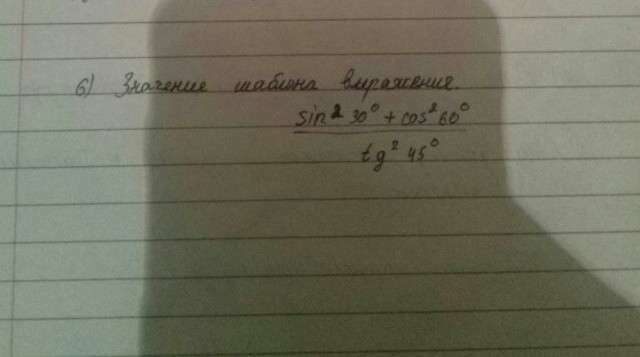 6) Значение шаблона выражения.
sin² 30° + cos² 60°
tg² 45°